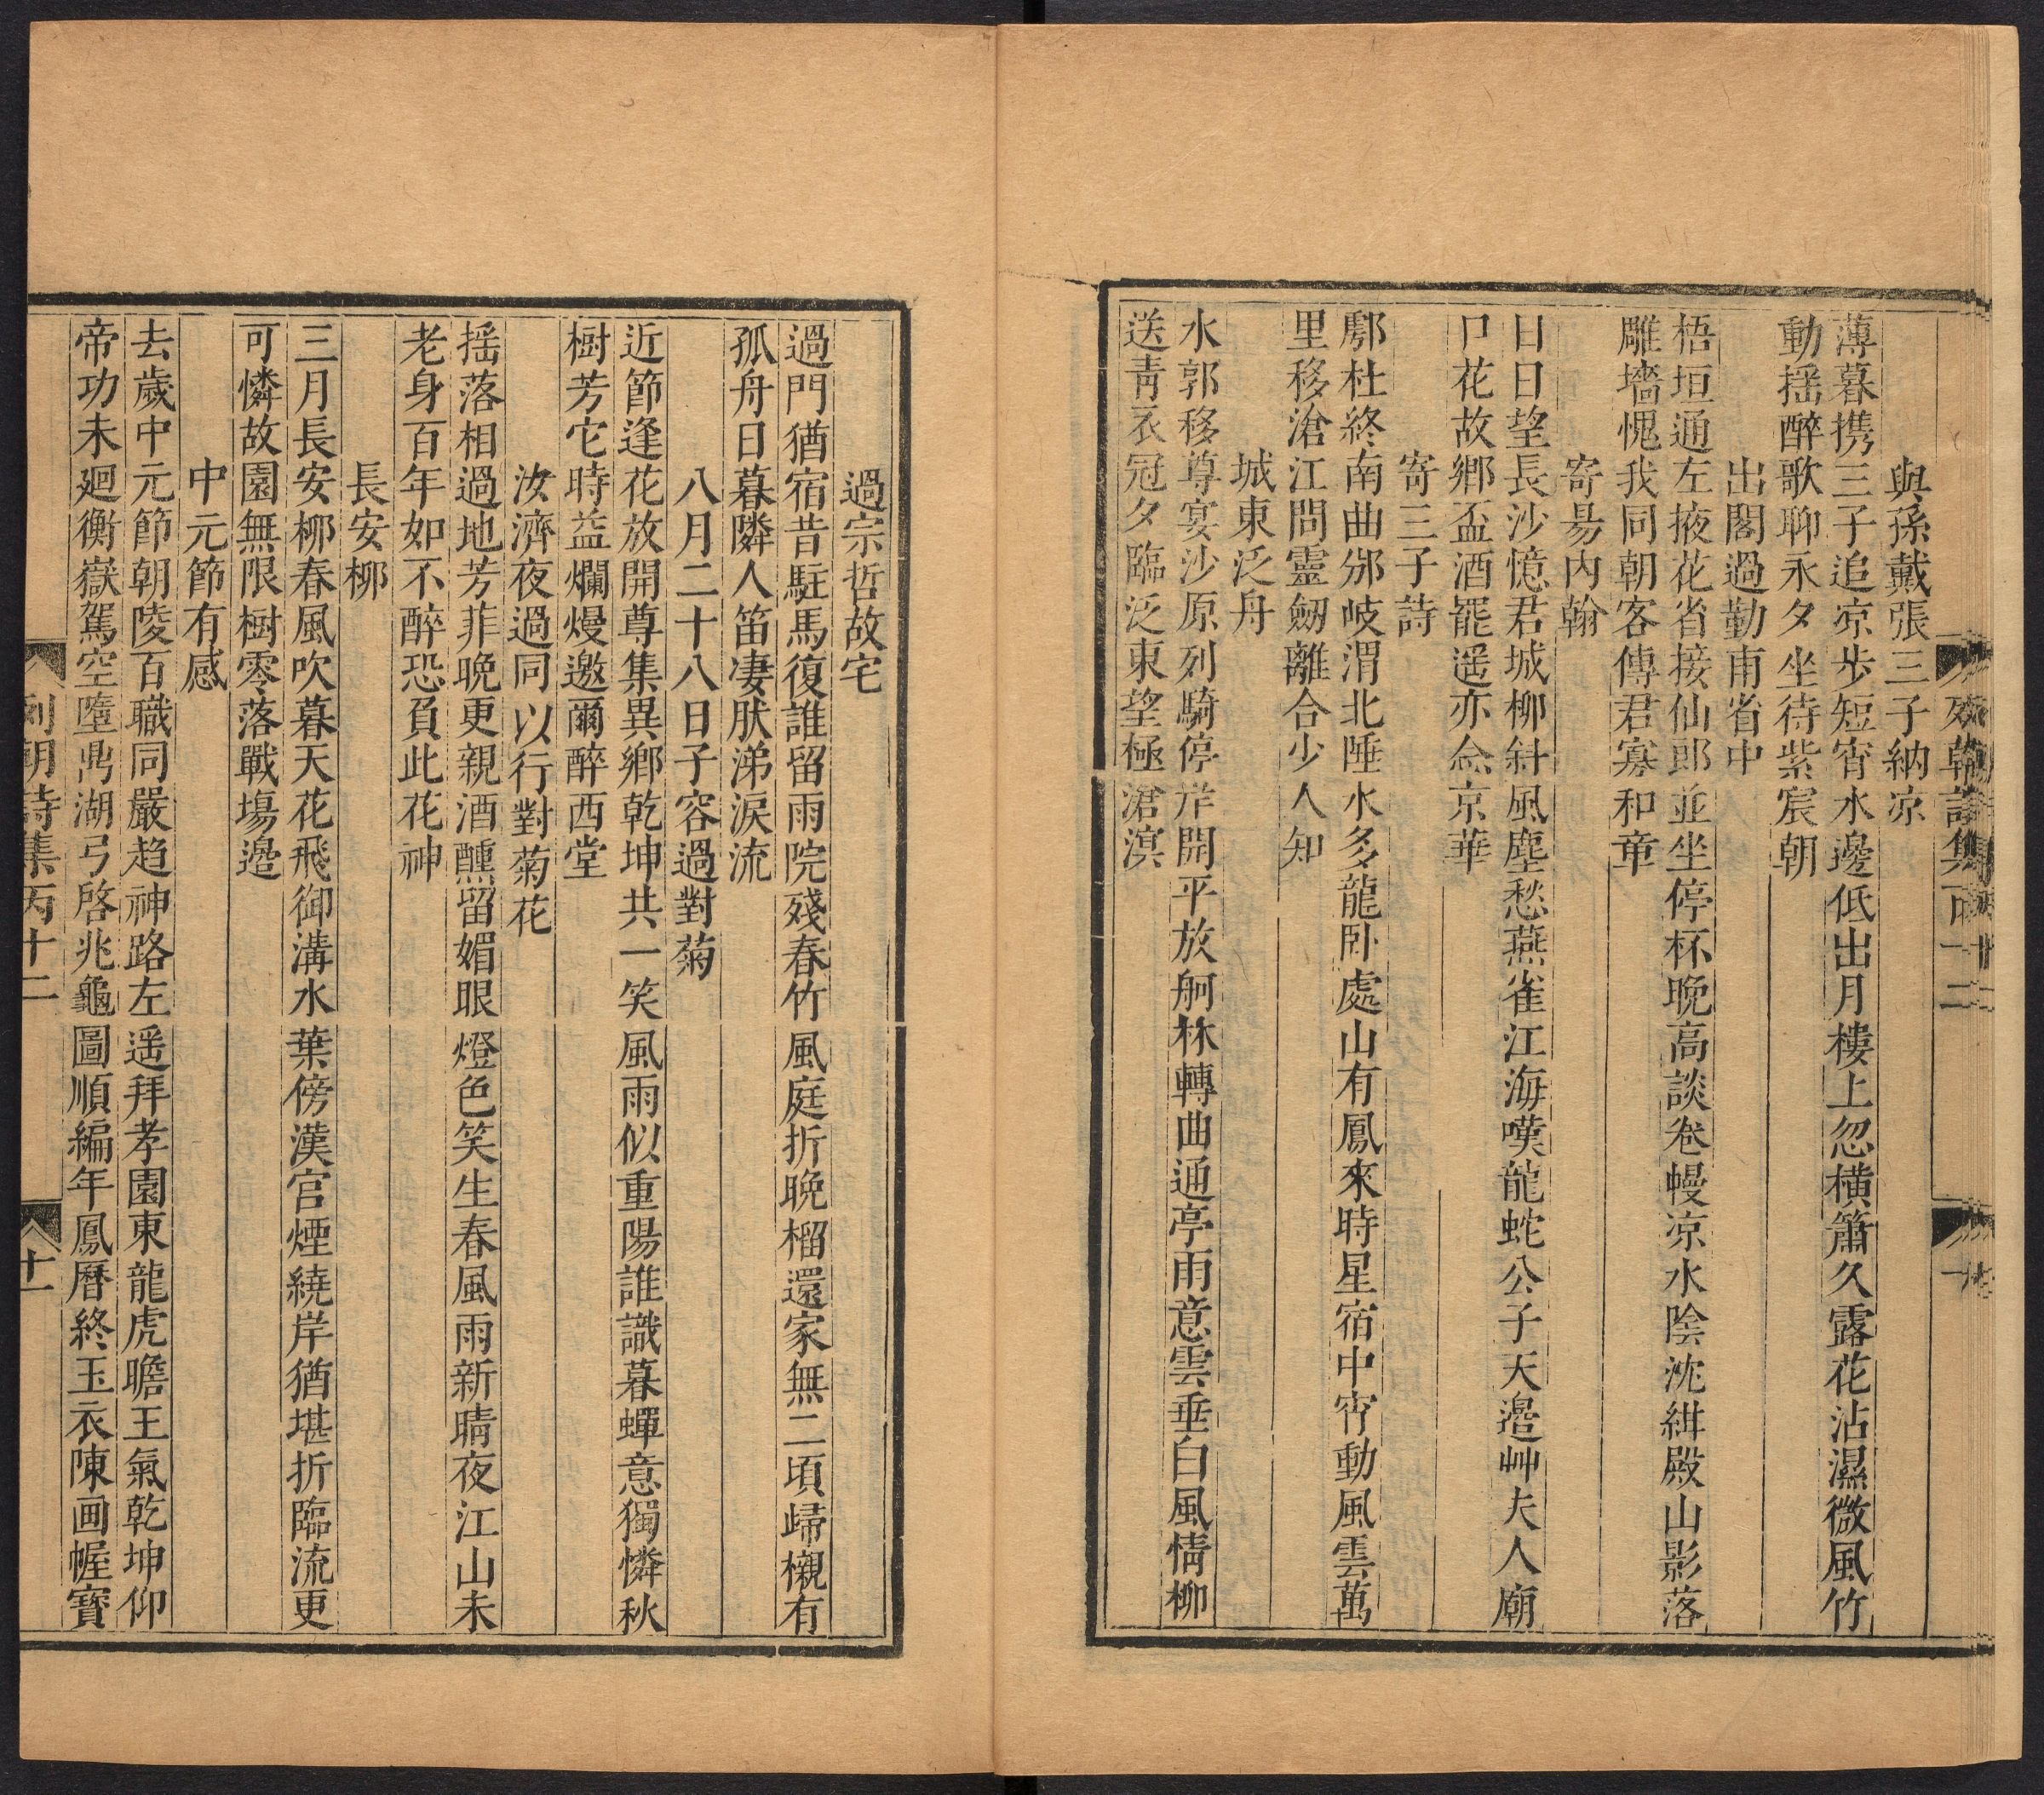 與孫戴張三子納凉
薄暮携三子追凉步短宵水邊低出月樓上忽横簫久露花沾濕微風竹
動揺醉歌聊永夕坐待紫宸朝
出閣過勤甫省中
梧垣通左掖花省接仙郎並坐停杯晚高談卷幔凉水陰沈紺殿山影落
雕墻愧我同朝客傳君寡和章
寄易内翰
日日望長沙憶君城柳斜風塵愁燕雀江海嘆龍蛇公子天邉艸夫人廟
門花故鄉盃酒罷遥亦念京華
寄三子詩
鄠杜終南曲邠岐渭北陲水多龍卧處山有鳳來時星宿中宵動風雲萬
里移滄江問靈劒離合少人知
城東泛舟
水郭移尊宴沙原列騎停岸開平放舸林轉曲通亭雨意雲垂白風情柳
送靑衣冠夕臨泛東望極滄溟
過宗哲故宅
過門猶宿昔駐馬復誰留雨院殘春竹風庭折晚榴還家無二頃歸櫬有
孤舟日暮隣人笛凄肰涕淚流
八月二十八日子容過對菊
近節逢花放開尊集異鄉乾坤共一笑風雨似重陽誰識暮蟬意獨憐秋
樹芳它時益爛熳邀爾醉西堂
汝濟夜過同以行對菊花
揺落相過地芳菲晚更親酒醺留媚眼燈色笑生春風雨新晴夜江山未
老身百年如不醉恐負此花神
長安柳
三月長安柳春風吹暮天花飛御溝水葉傍漢宫煙繞岸猶堪折臨流更
可憐故園無限樹零落戰塲邉
中元節有感
去歲中元節朝陵百職同嚴趋神路左遥拜孝園東龍虎瞻王氣乾坤仰
帝功未廻衡嶽駕空墮鼎湖弓啓兆龜圖順編年鳳曆終玉衣陳画幄寳
列朝詩集丙十二
十一